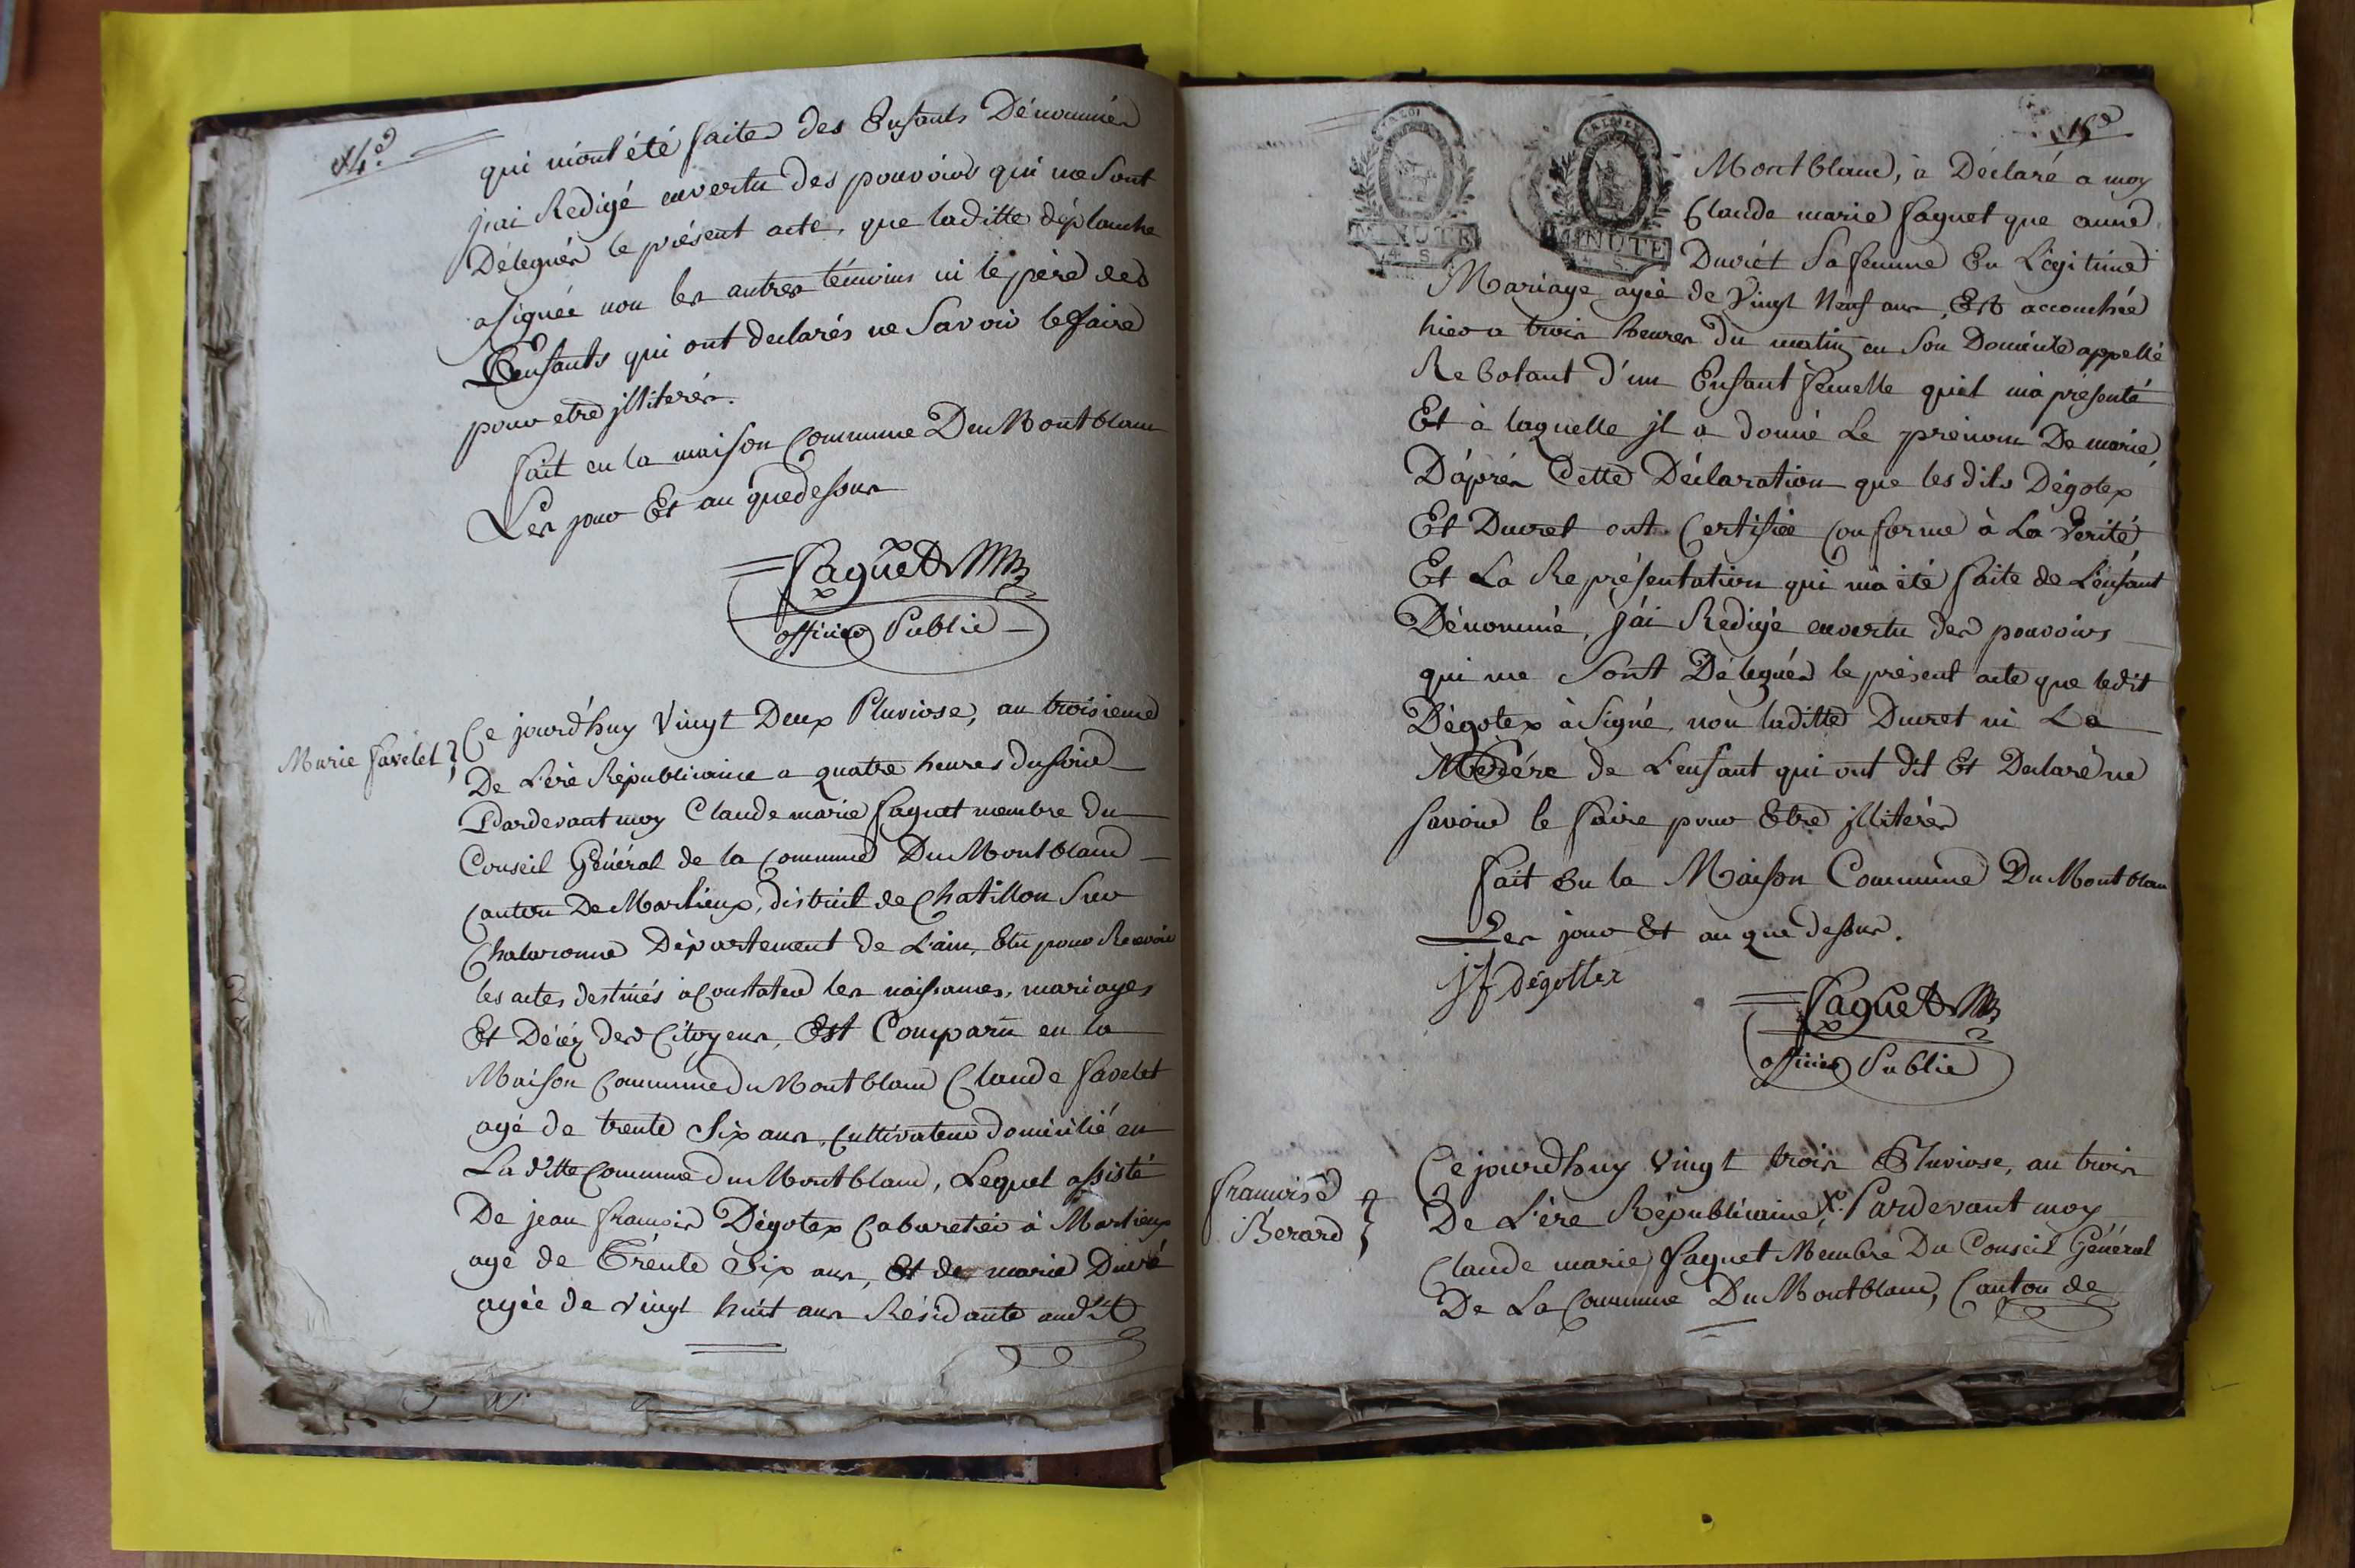 14e
qui m'ont été faites des Enfants Dénommés
j'ai Redigé envertu des pouvoirs qui me Sont
Délégués le présent acte, que laditte déplanche
a signée non les autres témoins ni le père des
Enfants qui ont declarés ne Savoir le faire
pour etre jlliterés.
fait en la maison Commune Du Montblanc
Les jour Et an que dessus
Saguet
officier Public
Marie favelet
Ce jourd'huy Vingt Deux Pluviose, an troisieme
De L'ere Républicaine a quatre heures du soir
Pardevant moy Claude marie Saguet membre du
Conseil Général de la Commune Du Montblanc
Canton De Marlieux, district de Chatillon Sur
Chalaronne Département de L'ain, Elu pour Recevoir
les actes destinés a Constater les naissances, mariages
Et Décéz des Citoyens, Est Comparu en la
Maison Commune du Montblanc Claude favelet
agé de trente Six ans, Cultivateur domicilié en
La ditte Commune du Montblanc, Lequel assisté
De jean françois Dégotex Cabaretier à Marlieux
agé de Trente Six ans, Et de marie Ducré
agée de vingt huit ans Résidante audit
15e
LA LOI
MINUTE
4 S
MINUTE
4 S
Montblanc, à Déclaré a moy
Claude marie Saguet que anne
Ducrét Sa femme En Légitime
Mariage agée de Vingt Neuf ans, Est accouchée
hier a trois heures du matin en Son Domicile appellé
Rebotant d'un Enfant femelle quil m'a présenté
Et à laquelle jl a donné Le prénom De marie,
D'aprés Cette Déclaration que les dits Dégotex
Et Ducret ont Certifiée Conforme à La Verité
Et La Représentation qui m'a été faite de L'enfant
Dénommé, j'ai Redigé envertu des pouvoirs
qui me Sont Délégués le présent acte que ledit
Dégotex à Signé non laditte Ducret ni Le
Père de L'enfant qui ont dit Et Declaré ne
savoir le faire pour Etre jlliterés
fait en la Maison Commune Du Montblanc
Les jour Et an que dessus.
jf Dégottex
Saguet
officier Public
françoise
Berard
Ce jourd'huy Vingt trois Pluviose, an trois
De L'ére Républicaine, Pardevant moy
Claude marie Saguet Membre Du Conseil Général
De La Commune Du Montblanc, Canton de